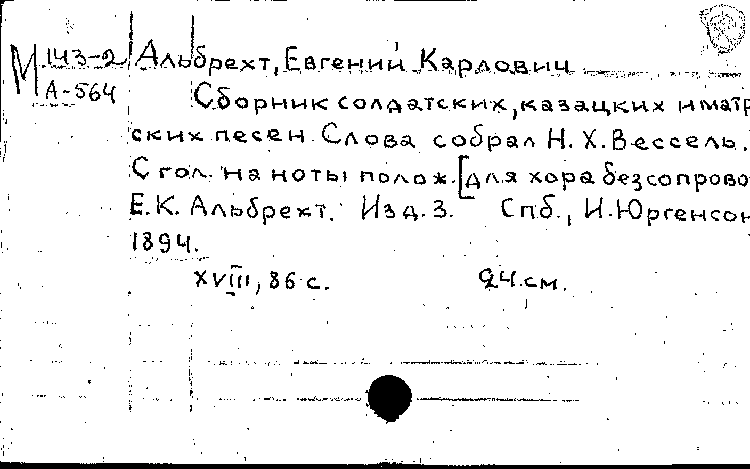 М 143-2 Альбрехт, Евгений Карлович
А-564 Сборник солдатских, казацких и матр
ских песен. Слова собрал Н. Х. Вессель.
С гол. на ноты полож. [для хора без сопрово
Е.К. Альбрехт. Изд. 3. Спб., И. Юргенсон
1894.
XVIII, 86 с. 24 см.